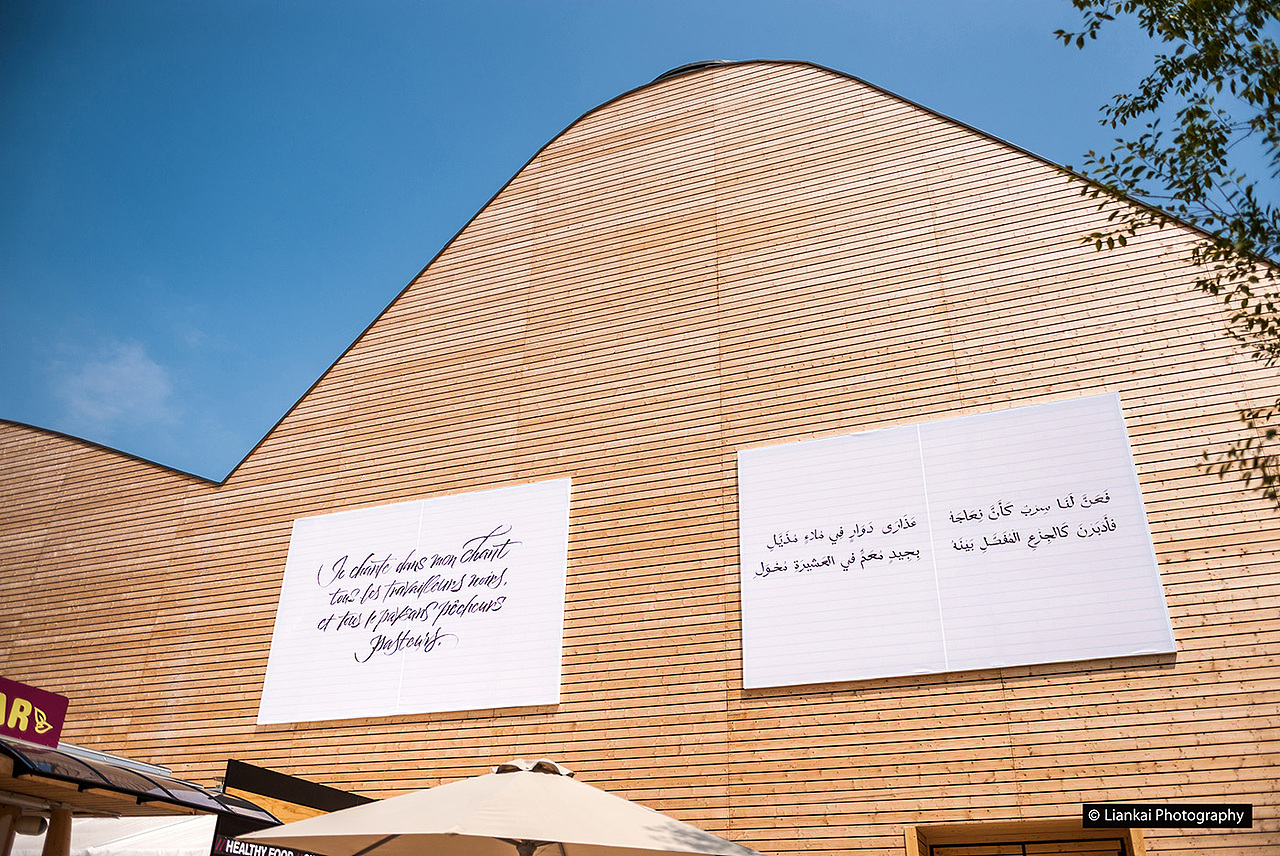 Je chante dans mon chant
tous les travailleurs noirs,
et tous le paysans pêcheurs
pasteurs.
فَعَنَّ لَنَا سِربٌ كَأَنَّ نِعَاجَهُ
عَذَارَى دَوَارٍ فِي مُلاَءٍ مُذَيَّلِ
فَأَدبَرنَ كَالجِزعِ المُفَصَّلِ بَينَهُ
بِجِيدٍ مُعَمٍّ فِي العَشِيرَةِ مُخوَلِ
AR
// HEALTHY FOOD
© Liankai Photography